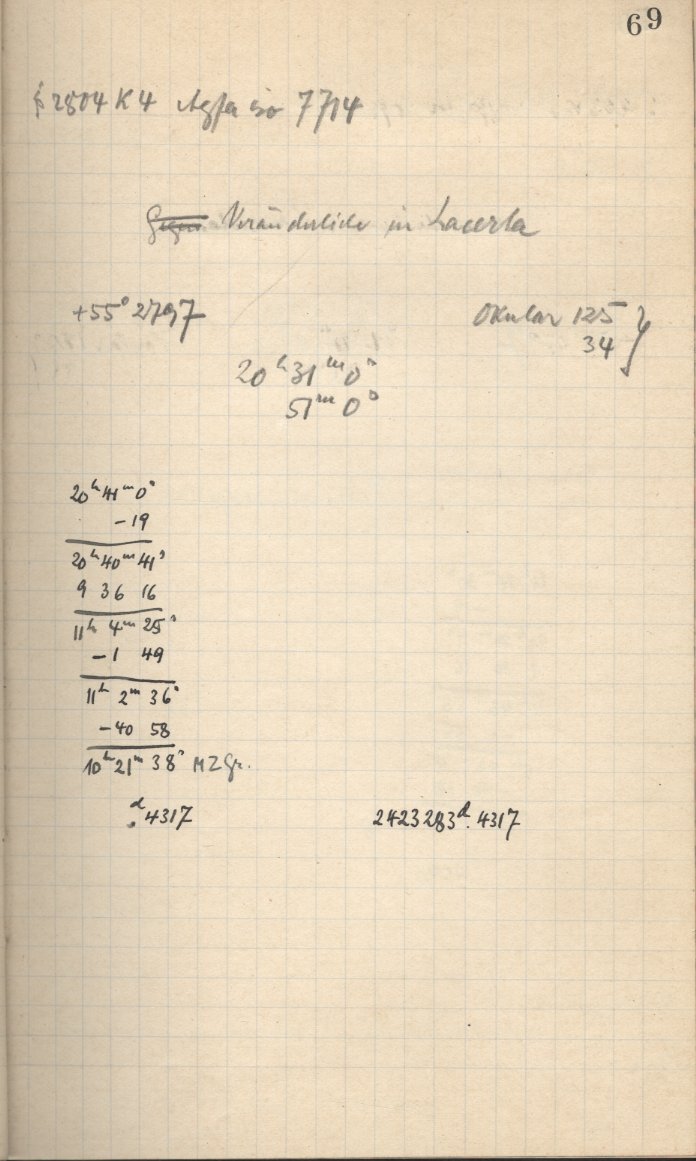 69
2804 K4 Agfa iso 7714
Gegen Veränderliche in Lacerta
+55° 2797
Okular 125
34 }
20ʰ 31ᵐ 0ˢ
51ᵐ 0ˢ
20ʰ 41ᵐ 0ˢ
-19
20ʰ 40ᵐ 41ˢ
9 36 16
11ʰ 4ᵐ 25ˢ
-1 49
11ʰ 2ᵐ 36ˢ
-40 58
10ʰ 21ᵐ 38ˢ MZGr.
.ᵈ4317
2423283ᵈ.4317